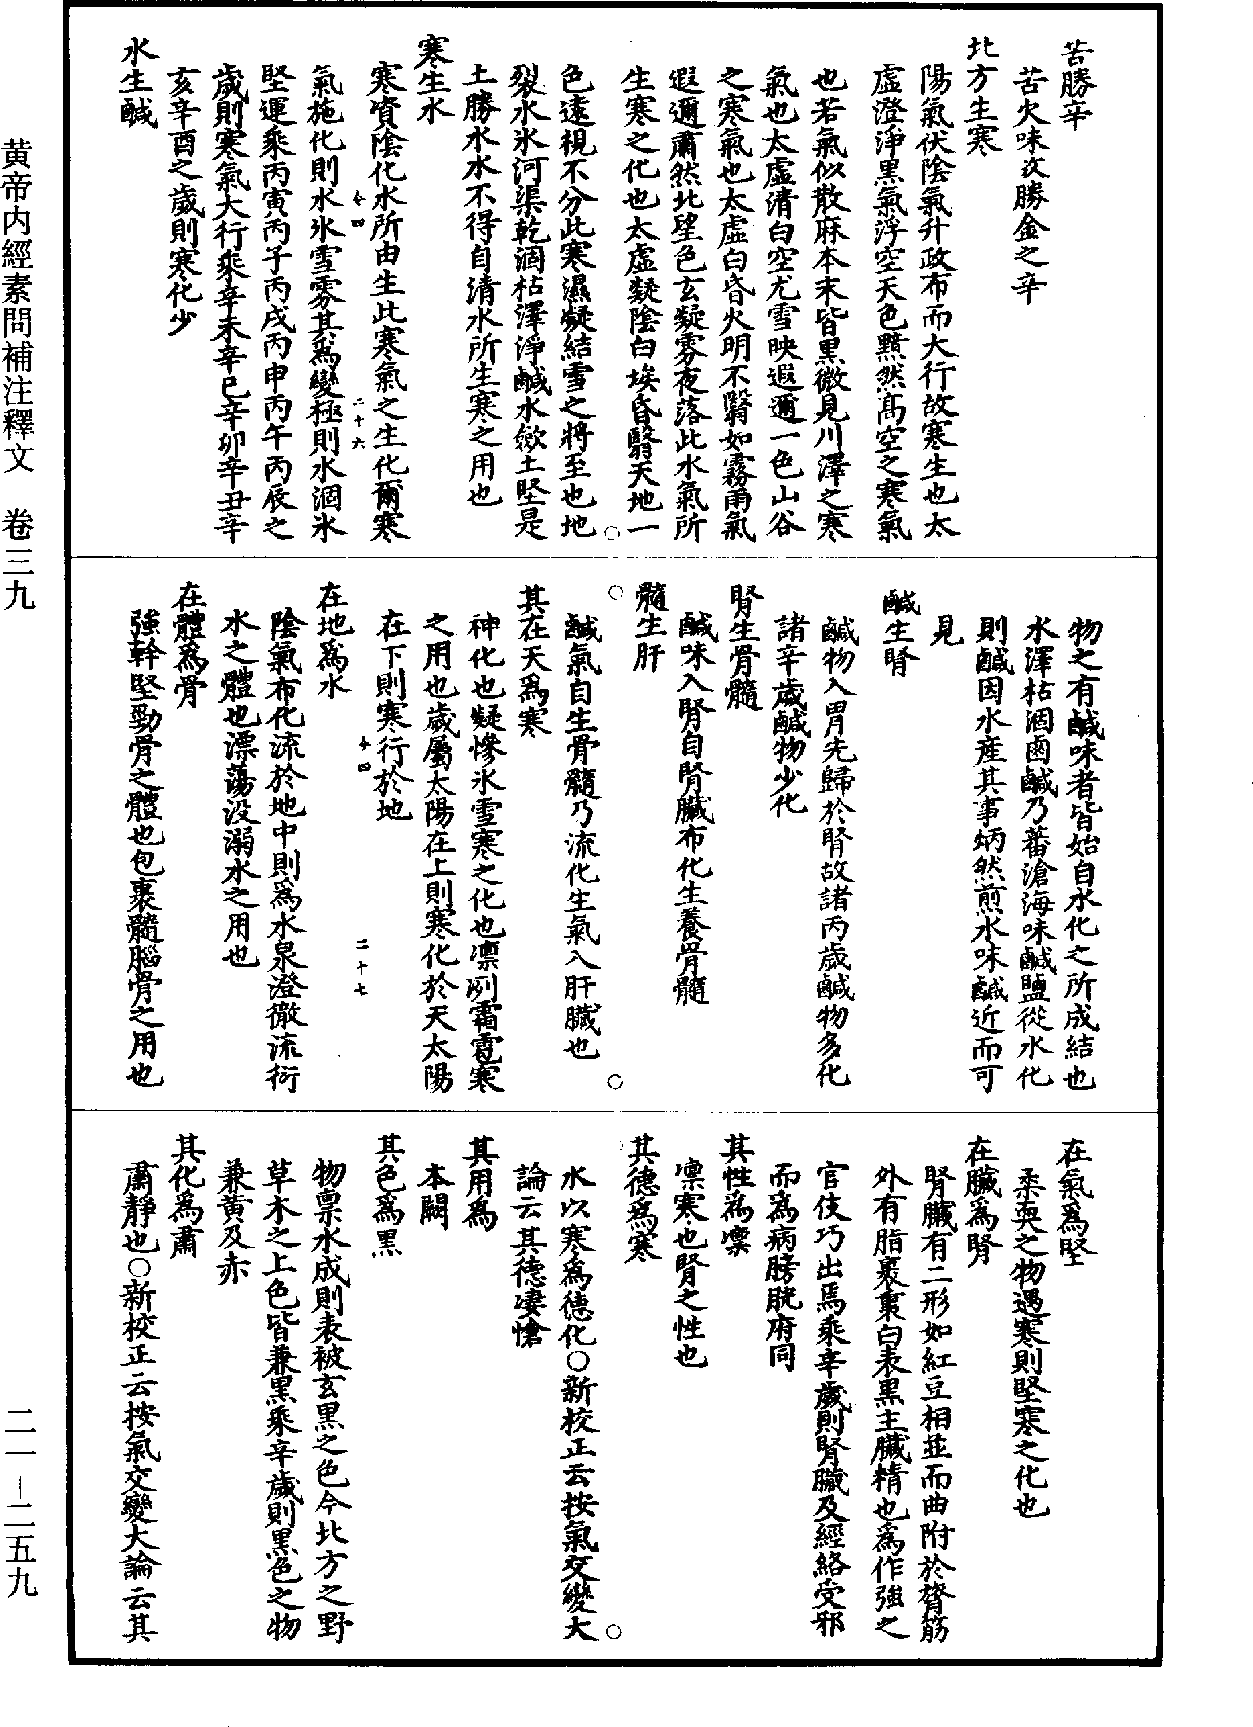 苦勝辛
苦火味故勝金之辛
北方生寒
陽氣伏陰氣升政布而大行故寒生也太
虛澄淨黑氣浮空天色黯然高空之寒氣
也若氣似散麻本末皆黑微見川澤之寒
氣也太虛清白空尤雪映遐邇一色山谷
之寒氣也太虛白昏火明不翳如霧雨氣
遐邇肅然北望色玄凝雰夜落此水氣所
生寒之化也太虛凝陰白埃昏翳天地一
色遠視不分此寒濕凝結雪之將至也地
裂水氷河渠乾涸枯澤淨鹹水斂土堅是
土勝水水不得自清水所生寒之用也
寒生水
寒資陰化水所由生此寒氣之生化爾寒
卜四 二十六
氣施化則水氷雪雰其爲變極則水涸氷
堅運乘丙寅丙子丙戌丙申丙午丙辰之
歲則寒氣大行乘辛未辛巳辛卯辛丑辛
亥辛酉之歲則寒化少
水生鹹
物之有鹹味者皆始自水化之所成結也
水澤枯涸鹵鹹乃蕃滄海味鹹鹽從水化
則鹹因水產其事炳然煎水味鹹近而可
見
鹹生腎
鹹物入胃先歸於腎故諸丙歲鹹物多化
諸辛歲鹹物少化
腎生骨髓
鹹味入腎自腎臟布化生養骨髓
髓生肝
鹹氣自生骨髓乃流化生氣入肝臟也
其在天爲寒
神化也凝慘氷雪寒之化也凛冽霜雹寒
之用也歲屬太陽在上則寒化於天太陽
在下則寒行於地
卜四 二十七
在地爲水
陰氣布化流於地中則爲水泉澄徹流衍
水之體也漂蕩没溺水之用也
在體爲骨
強幹堅勁骨之體也包裹髓腦骨之用也
在氣爲堅
柔耎之物遇寒則堅寒之化也
在臟爲腎
腎臟有二形如紅豆相並而曲附於膂筋
外有脂裹裹白表黑主臟精也爲作強之
官伎巧出焉乘辛歲則腎臟及經絡受邪
而爲病膀胱府同
其性爲凛
凛寒也腎之性也
其德爲寒
水以寒爲德化○新校正云按氣交變大
論云其德凄愴
其用爲
本闕
其色爲黑
物禀水成則表被玄黑之色今北方之野
草木之上色皆兼黑乘辛歲則黑色之物
兼黃及赤
其化爲肅
肅靜也○新校正云按氣交變大論云其
黄帝内經素問補注釋文 卷三九
二一-二五九